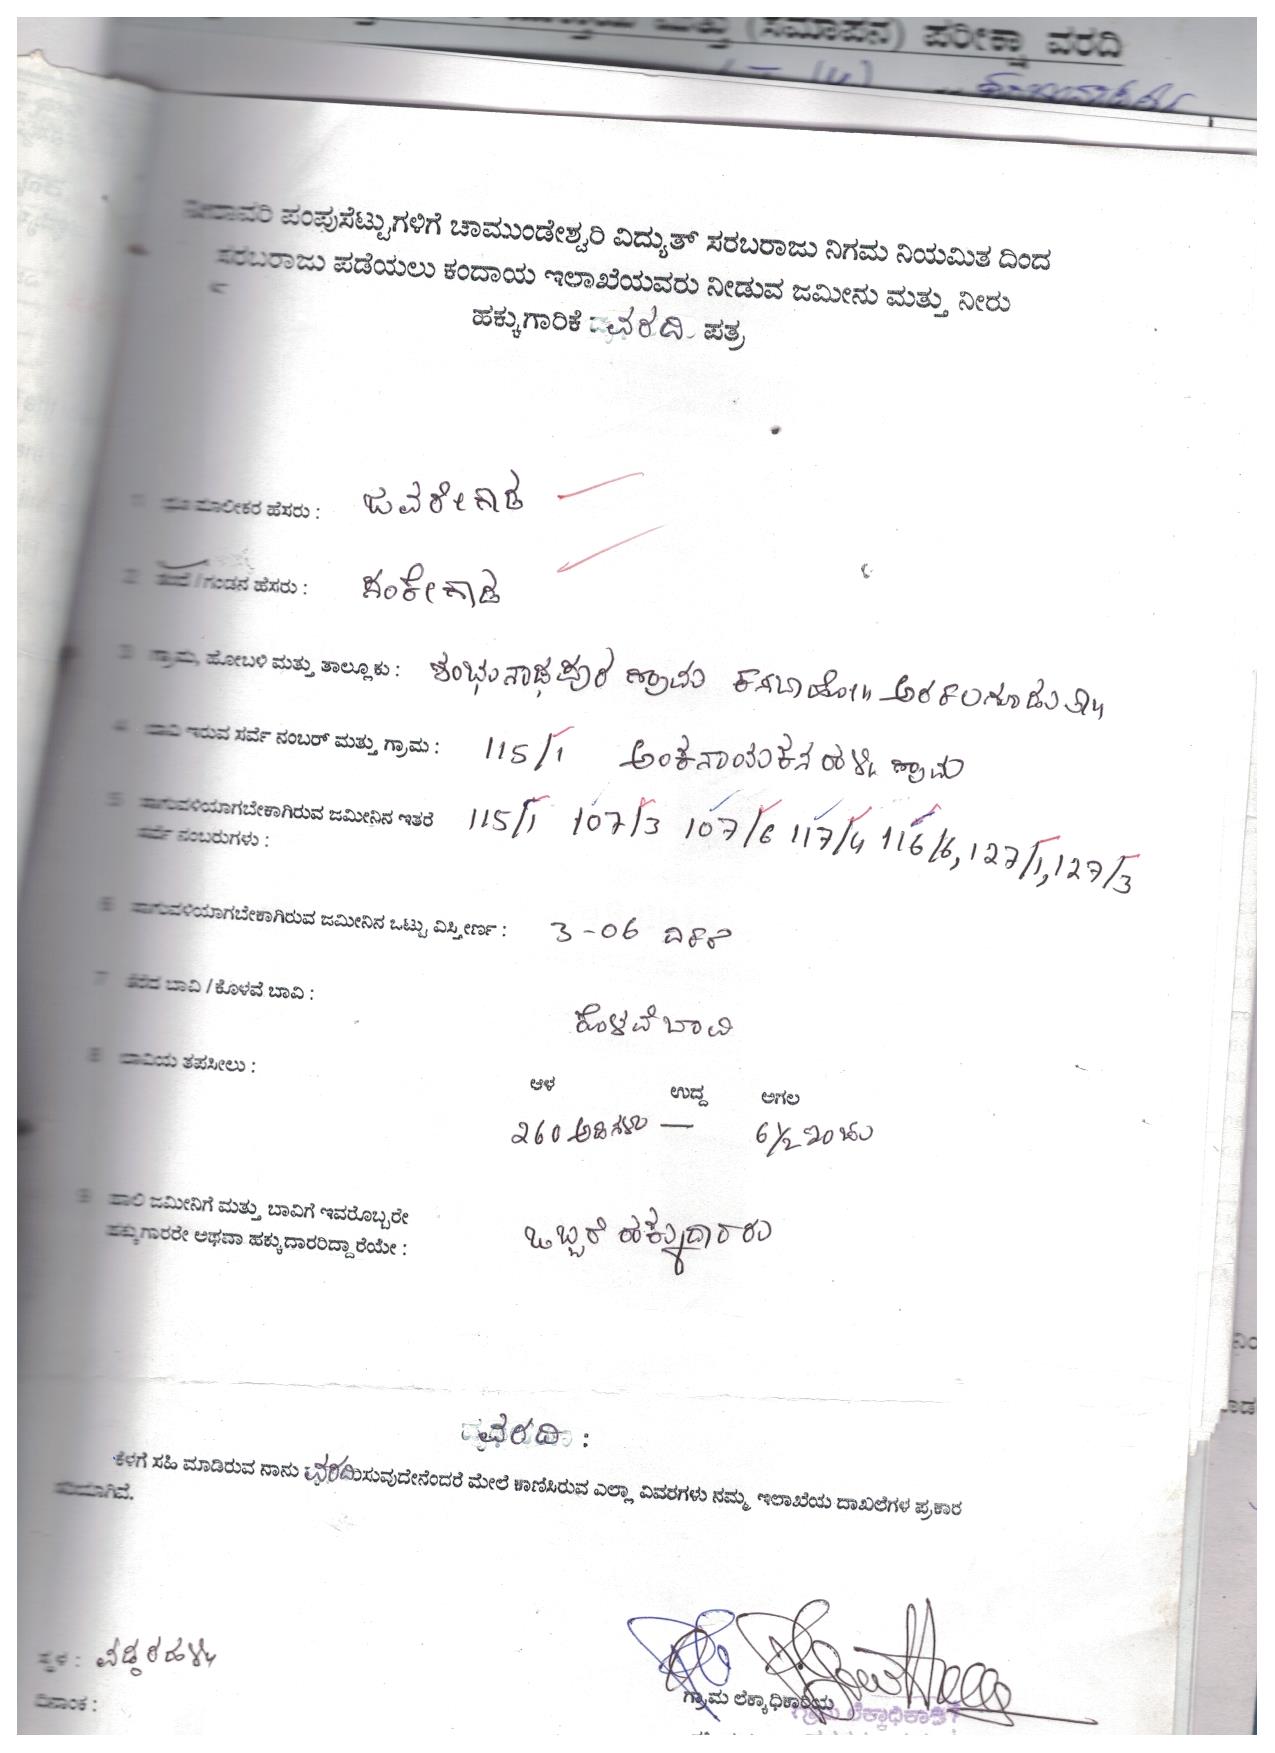 ಮತ್ತು (ಸಮಾಪನ) ಪರೀಕ್ಷಾ ವರದಿ
ನೀರಾವರಿ ಪಂಪುಸೆಟ್ಟುಗಳಿಗೆ ಚಾಮುಂಡೇಶ್ವರಿ ವಿದ್ಯುತ್ ಸರಬರಾಜು ನಿಗಮ ನಿಯಮಿತ ದಿಂದ
ಸರಬರಾಜು ಪಡೆಯಲು ಕಂದಾಯ ಇಲಾಖೆಯವರು ನೀಡುವ ಜಮೀನು ಮತ್ತು ನೀರು
ಹಕ್ಕುಗಾರಿಕೆ ವರದಿ ಪತ್ರ
1 ಭೂ ಮಾಲೀಕರ ಹೆಸರು : ಜವರೇಗೌಡ
2 ತಂದೆ / ಗಂಡನ ಹೆಸರು :
3 ಗ್ರಾಮ, ಹೋಬಳಿ ಮತ್ತು ತಾಲ್ಲೂಕು : ಶಂಭುನಾಥಪುರ ಗ್ರಾಮ ಕಸಬಾ ಹೋ॥ ಅರಕಲಗೂಡು ತಾ॥
4 ಬಾವಿ ಇರುವ ಸರ್ವೆ ನಂಬರ್ ಮತ್ತು ಗ್ರಾಮ : 115/1 ಅಂಕನಾಯಕನಹಳ್ಳಿ ಗ್ರಾಮ
5 ಸಾಗುವಳಿಯಾಗಬೇಕಾಗಿರುವ ಜಮೀನಿನ ಇತರೆ 115/1 107/3 107/6 117/4 116/6, 127/1, 127/3
ಸರ್ವೆ ನಂಬರುಗಳು :
6 ಸಾಗುವಳಿಯಾಗಬೇಕಾಗಿರುವ ಜಮೀನಿನ ಒಟ್ಟು ವಿಸ್ತೀರ್ಣ : 3-06 ಎಕರೆ
7 ತೆರೆದ ಬಾವಿ / ಕೊಳವೆ ಬಾವಿ :
ಕೊಳವೆ ಬಾವಿ
8 ಬಾವಿಯ ತಪಸೀಲು :
ಆಳ ಉದ್ದ ಅಗಲ
260 ಅಡಿಗಳು — 6½ ಇಂಚು
9 ಹಾಲಿ ಜಮೀನಿಗೆ ಮತ್ತು ಬಾವಿಗೆ ಇವರೊಬ್ಬರೇ
ಹಕ್ಕುಗಾರರೇ ಅಥವಾ ಹಕ್ಕುದಾರರಿದ್ದಾರೆಯೇ : ಒಬ್ಬರೆ ಹಕ್ಕುದಾರರು
ವರದಿ :
ಕೆಳಗೆ ಸಹಿ ಮಾಡಿರುವ ನಾನು ವರದಿಸುವುದೇನೆಂದರೆ ಮೇಲೆ ಕಾಣಿಸಿರುವ ಎಲ್ಲಾ ವಿವರಗಳು ನಮ್ಮ ಇಲಾಖೆಯ ದಾಖಲೆಗಳ ಪ್ರಕಾರ
ಸರಿಯಾಗಿವೆ.
ಸ್ಥಳ : ವಡ್ಡರಹಳ್ಳಿ
ದಿನಾಂಕ :
ಗ್ರಾಮ ಲೆಕ್ಕಾಧಿಕಾರಿಯ
ಗ್ರಾಮ ಲೆಕ್ಕಾಧಿಕಾರಿಗೆ